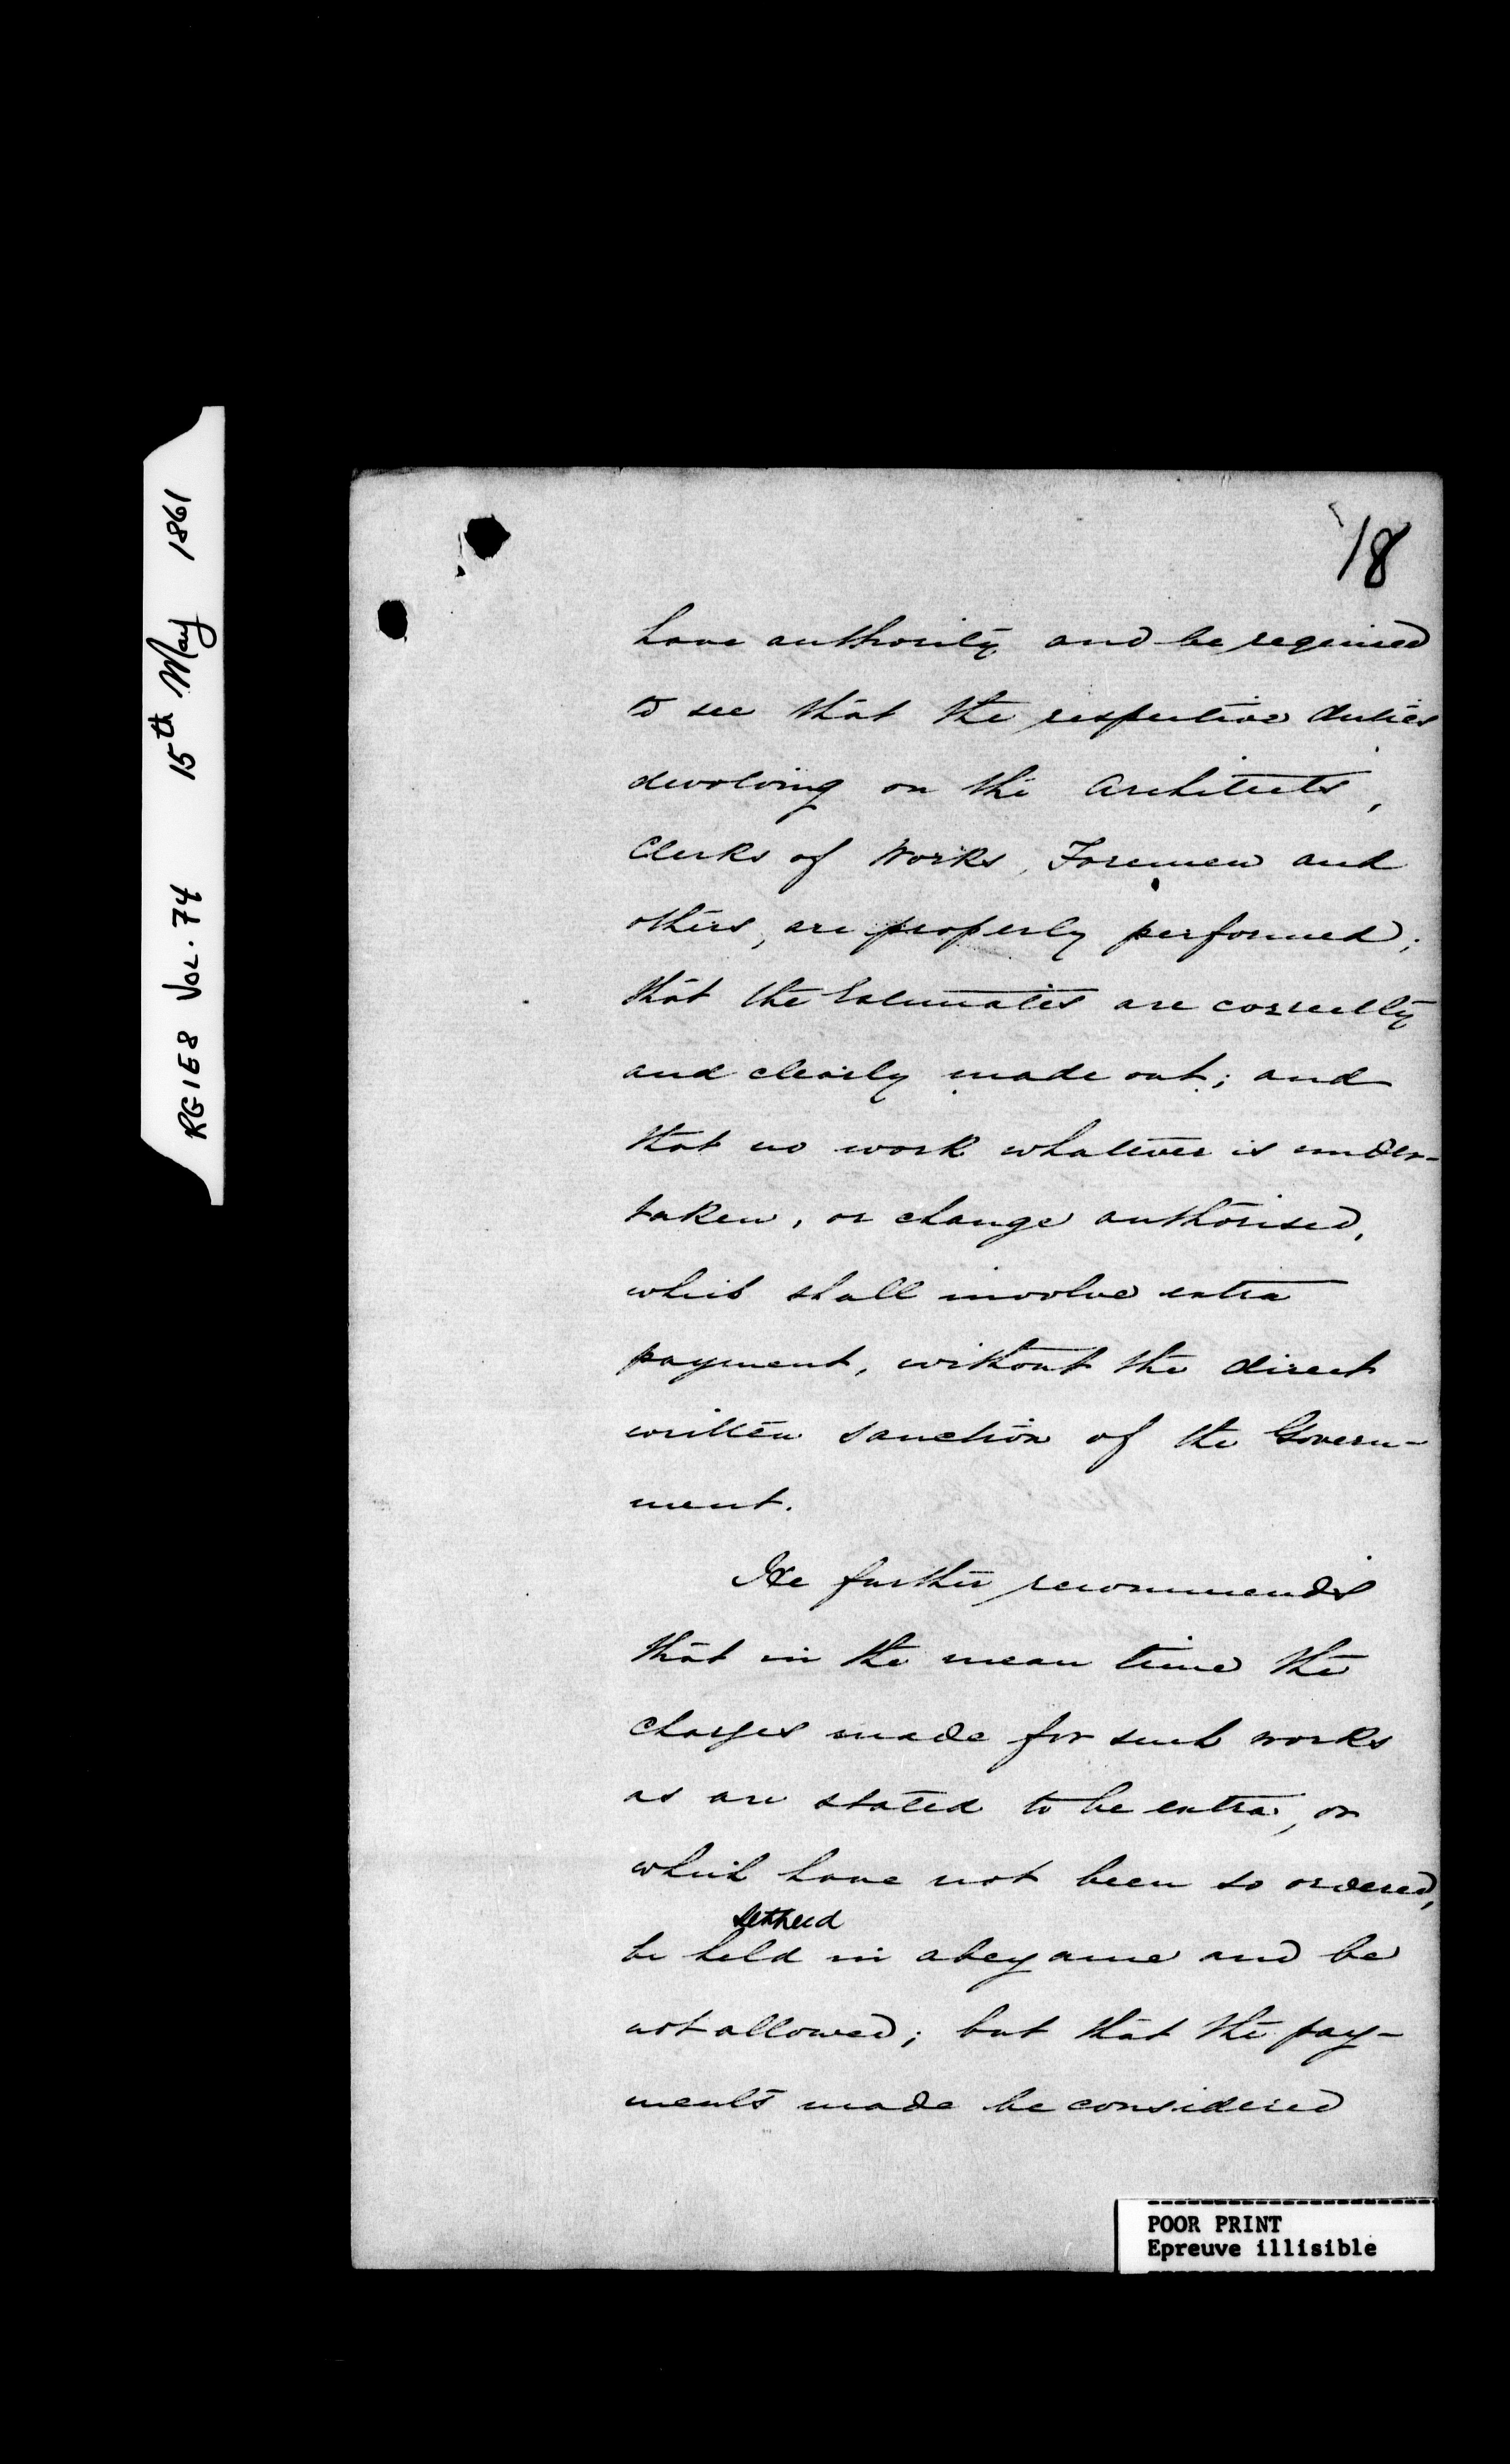 RG1E8 VOL. 74 15th May 1861
18
have authority and be required
to see that the respective duties
devolving on the Architects,
Clerks of Works, Foremen and
others, are properly performed;
that the Estimates are correctly
and clearly made out; and
that no work whatever is under-
taken, or change authorised,
which shall involve extra
payment, without the direct
written sanction of the Govern-
ment.
He further recommends
that in the mean time the
charges made for such works
as are stated to be extra, or
which have not been so ordered,
be held in abeyance and be
not allowed; but that the pay-
ments made be considered
POOR PRINT
Epreuve illisible